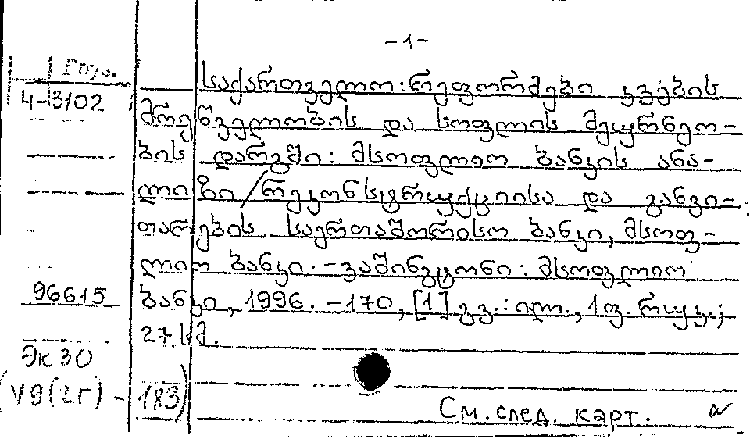 -1-
საქართველო: რეფორმები კვების
4-3102
მრეწველობის და სოფლის მეურნეო-
ბის დარგში: მსოფლიო ბანკის ანა-
ლიზი / რეკონსტრუქციისა და განვი-
თარების საერთაშორისო ბანკი, მსოფ-
ლიო ბანკი. - ვაშინგტონი: მსოფლიო
96615 ბანკი, 1996. - 170, [1] გვ.: ილ., 1 ფ. რუკ.;
27 სმ.
Эк 30
(У9(2Г) - 183)
См. след. карт.